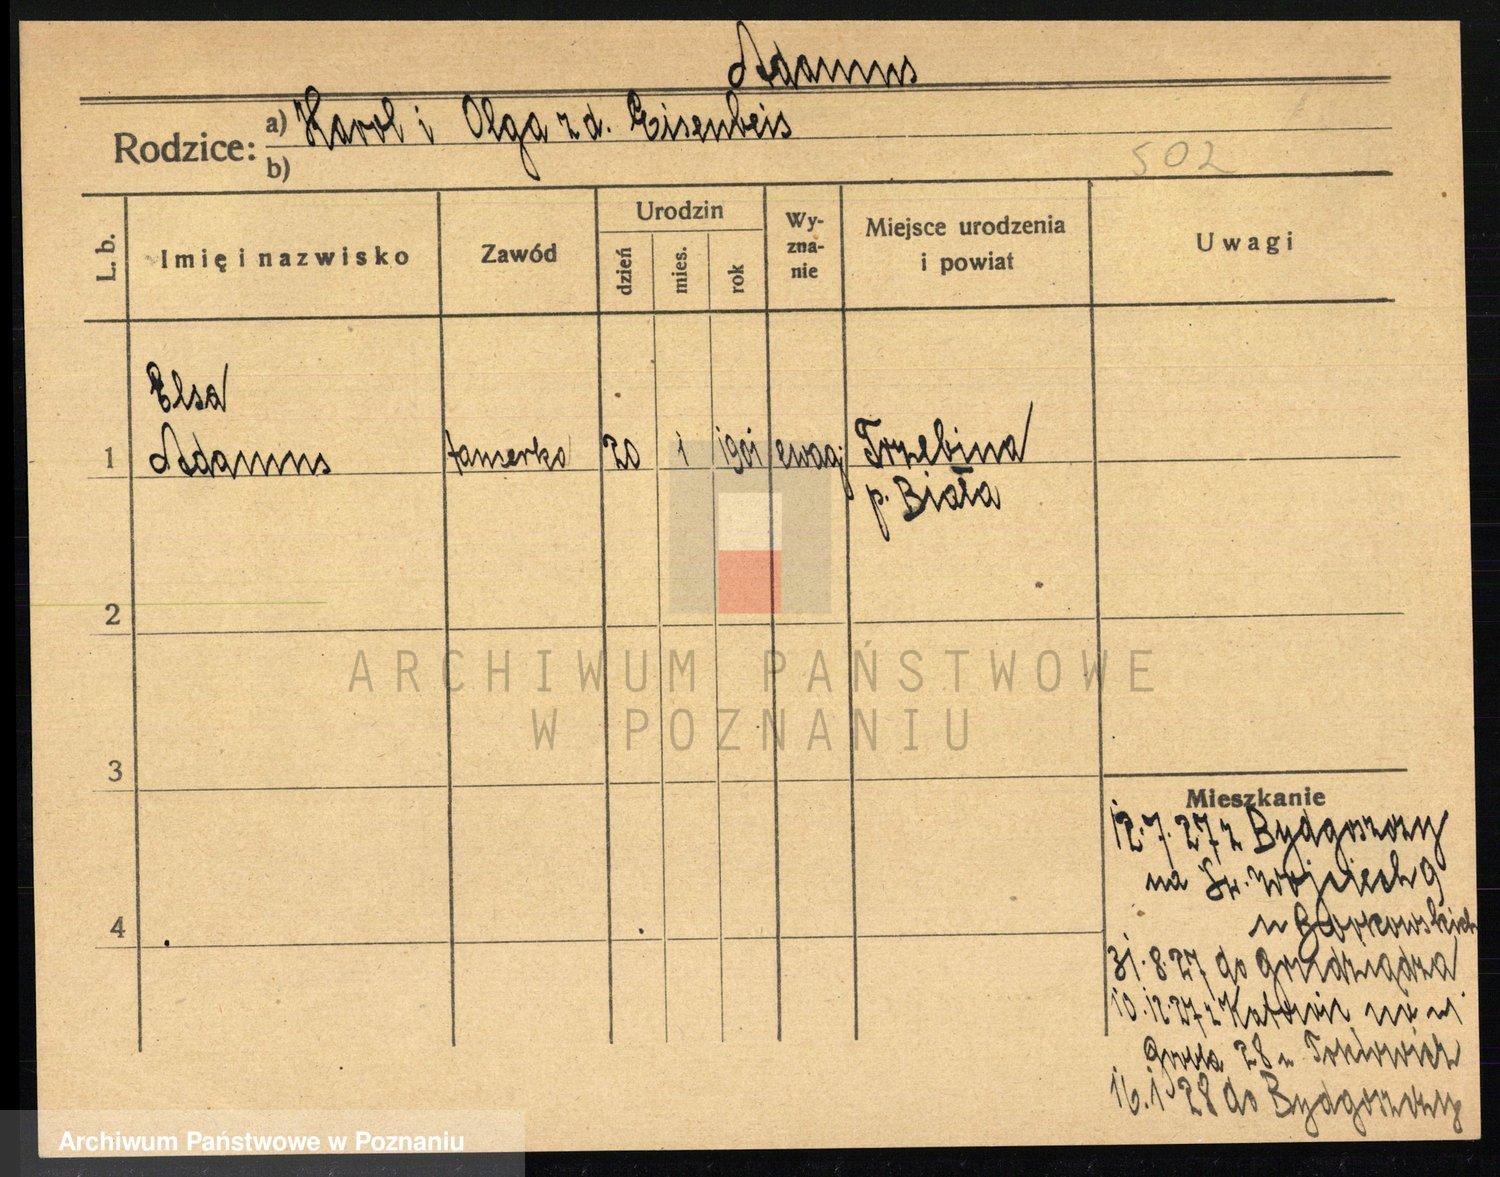 Adamus
Rodzice: a) Karol i Olga z d. Eisenbeis
b)
502
L. b. Imię i nazwisko Zawód Urodzin dzień mies. rok Wy-zna-nie Miejsce urodzenia i powiat Uwagi
Elsa
1 Adamus tancerka 20 1 1901 ewag Trzebina
p. Biała
2
ARCHIWUM PAŃSTWOWE
W POZNANIU
3
Mieszkanie
12.7.27 z Bydgoszczy
na Św. Wojciech 9
u Borkowskich
4
31.8.27 do Grudziądza
10.12 27 z Katowic na ul
28 u
16.1 28 do Bydgoszczy
Archiwum Państwowe w Poznaniu